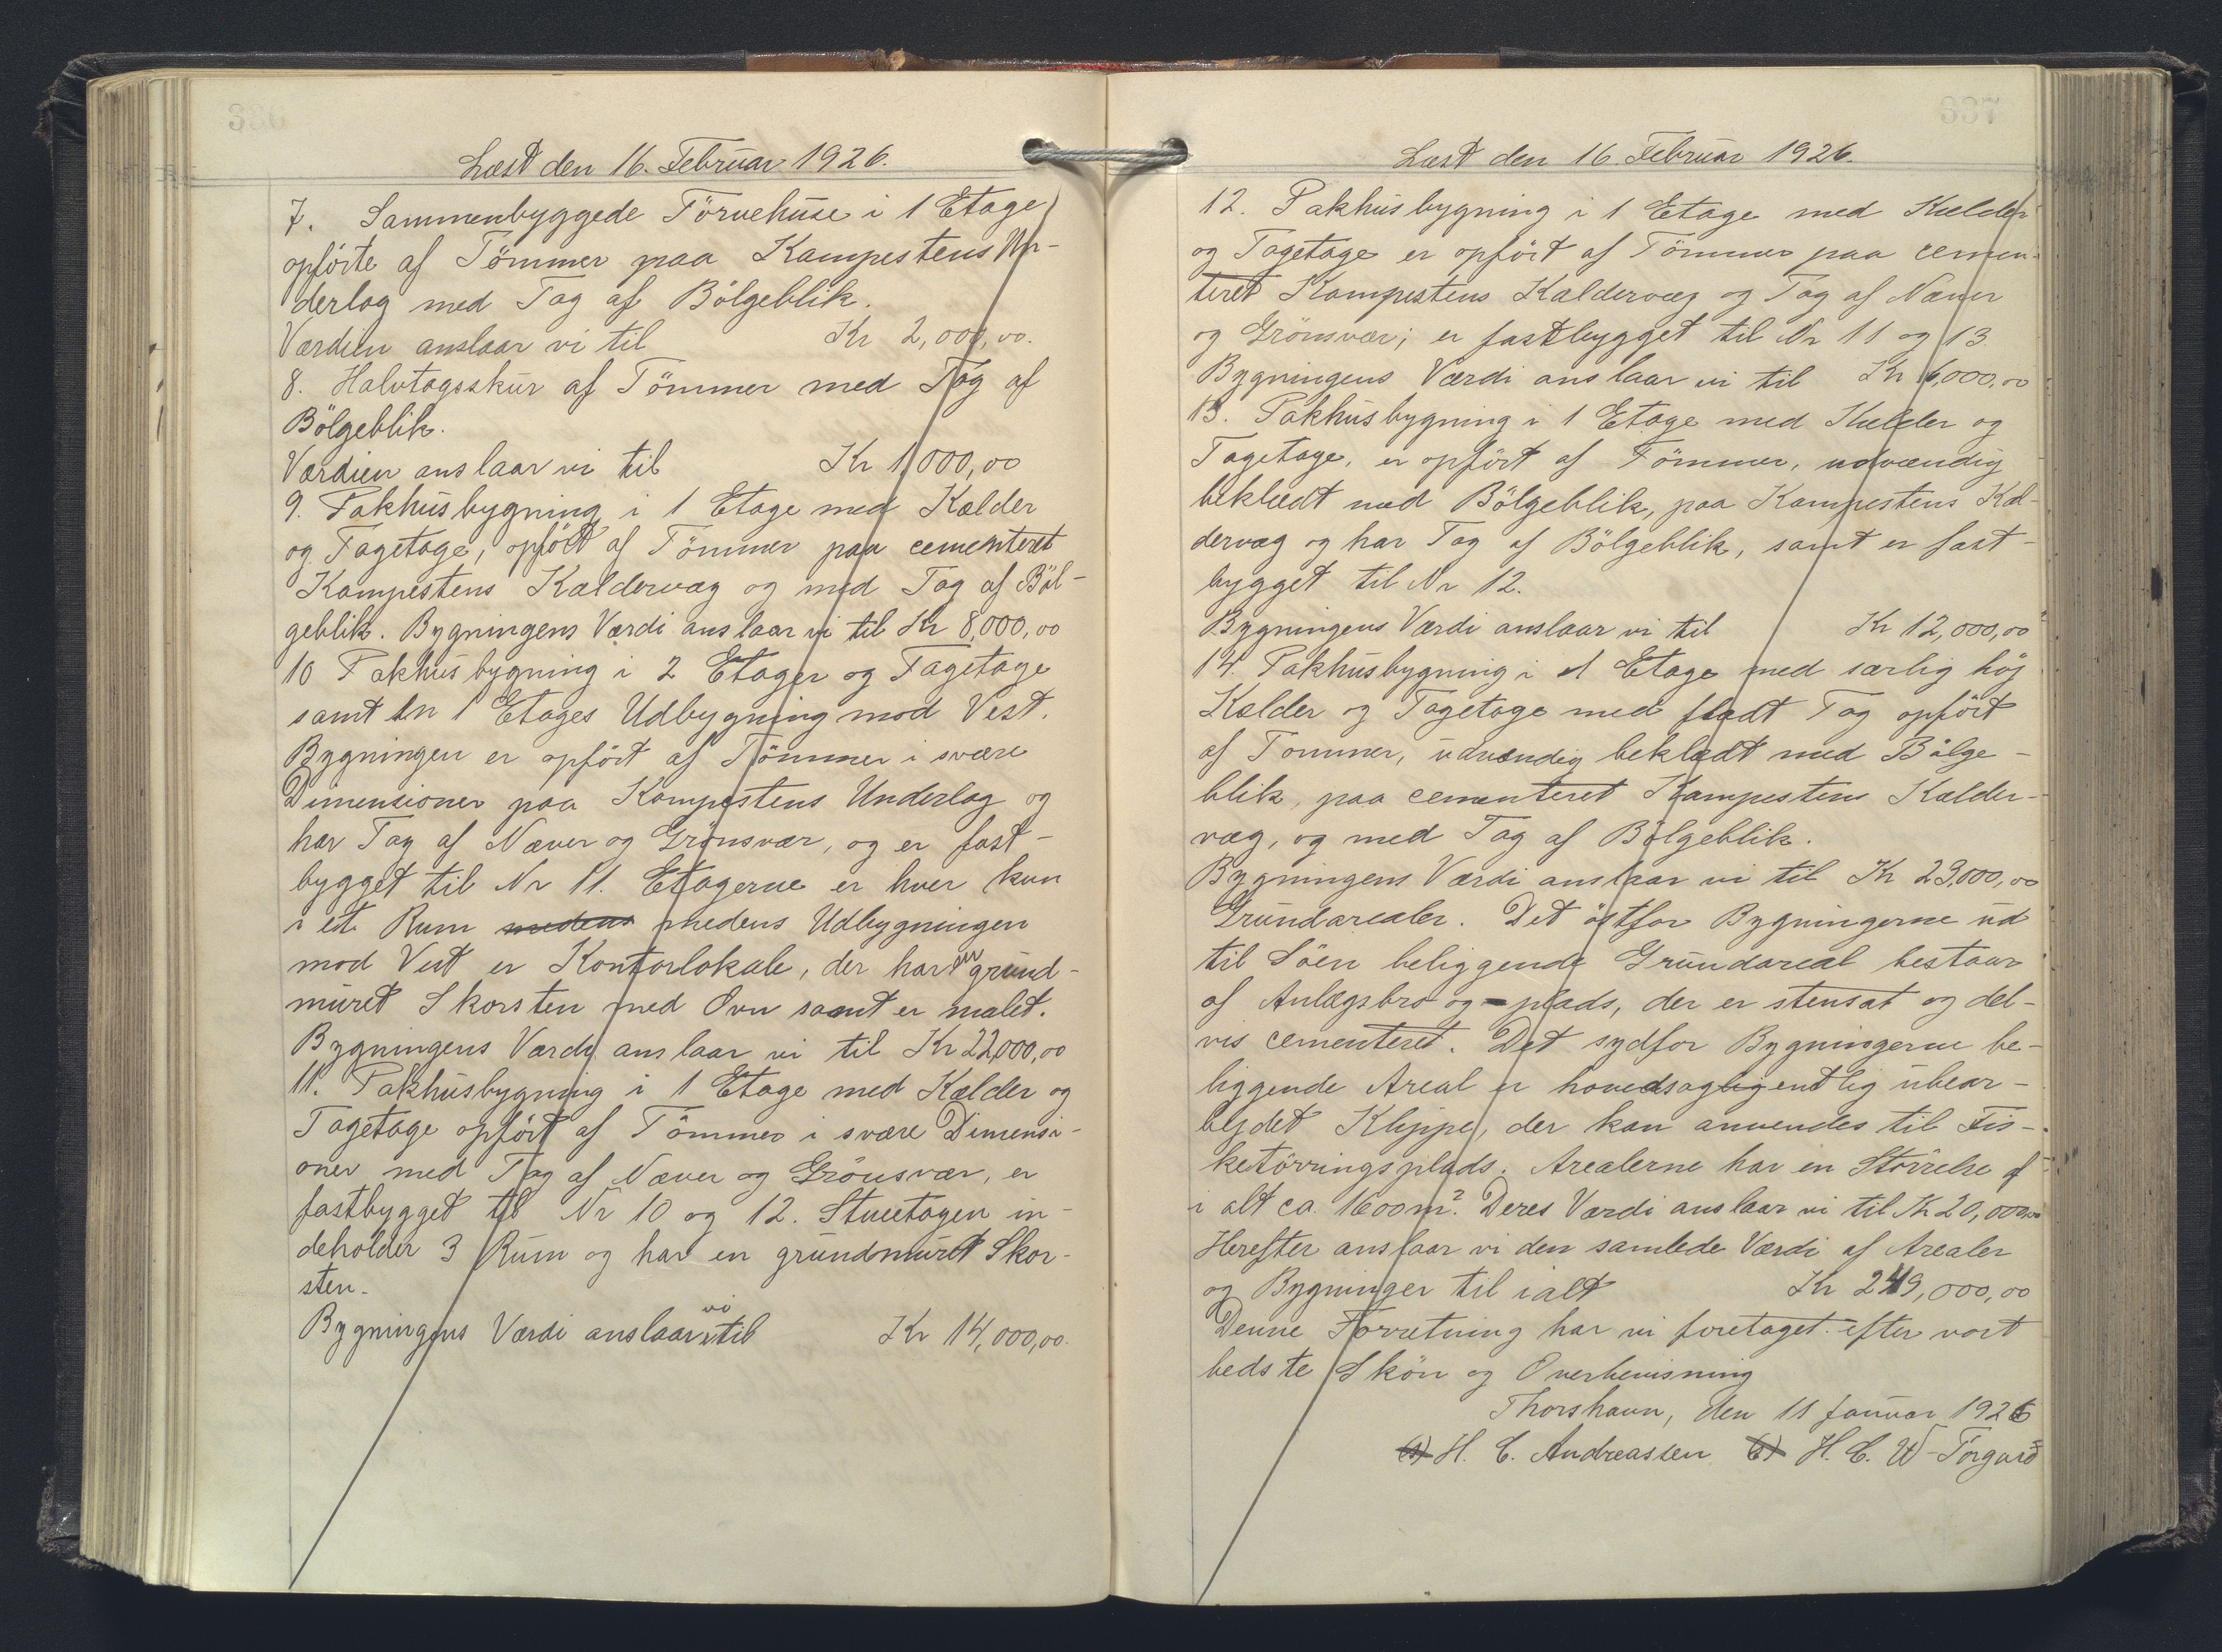 336
Læst den 16. Februar 1926.
7. Sammenbyggede Törvehuse i 1 Etage
opförte af Tömmer paa Kampestens Un-
derlag med Tag af Bölgeblik.
Værdien anslaar vi til Kr 2,000,00.
8. Halvtagsskur af Tömmer med Tag af
Bölgeblik.
Værdien anslaar vi til Kr 1,000,00
9. Pakhusbygning i 1 Etage med Kælder
og Tagetage, opfört af Tömmer paa cementeret
Kampestens Kældervæg og med Tag af Böl-
geblik. Bygningens Værdi anslaar vi til Kr 8,000,00
10 Pakhusbygning i 2 Etager og Tagetage
samt en 1 Etages Udbygning mod Vest.
Bygningen er opfört af Tömmer i svære
Dimensioner paa Kampestens Underlag og
har Tag af Næver og Grönsvær, og er fast-
bygget til Nr 11. Etagerne er hver kun
i et Rum medens medens Udbygningen
mod Vest er Kontorlokale, der har en grund-
muret Skorsten med Ovn samt er malet.
Bygningens Værdi anslaar vi til Kr 22,000,00
11. Pakhusbygning i 1 Etage med Kælder og
Tagetage opfört af Tömmer i svære Dimensi-
oner med Tag af Næver og Grönsvær, er
fastbygget til Nr 10 og 12. Stueetagen in-
deholder 3 Rum og har en grundmuret Skor-
sten.
Bygningens Værdi anslaar vi til Kr 14,000,00.
337
Læst den 16. Februar 1926.
12. Pakhusbygning i 1 Etage med Kælder
og Tagetage er opfört af Tömmer paa cemen-
teret Kampestens Kældervæg og Tag af Næver
og Grönsvær; er fastbygget til Nr 11 og 13.
Bygningens Værdi anslaar vi til Kr 6,000,00
13. Pakhusbygning i 1 Etage med Kælder og
Tagetage, er opfört af Tömmer, udvændig
beklædt med Bölgeblik, paa Kampestens Kæl-
dervæg og har Tag af Bölgeblik, samt er fast-
bygget til Nr 12.
Bygningens Værdi anslaar vi til Kr 12,000,00
14. Pakhusbygning i 1 Etage med særlig höj
Kælder og Tagetage med fladt Tag opfört
af Tömmer, udvændig beklædt med Bölge-
blik, paa cementeret Kampestens Kælder-
væg, og med Tag af Bölgeblik.
Bygningens Værdi anslaar vi til Kr 23,000,00
Grundarealer. Det östfor Bygningerne ud
til Söen beliggende Grundareal bestaar
af Anlægsbro og -plads, der er stensat og del-
vis cementeret. Det sydfor Bygningerne be-
liggende Areal er hovedsagligentlig ubear-
bejdet Klippe, der kan anvendes til Fis-
ketörringsplads. Arealerne har en Störrelse af
i alt ca. 1600 m². Deres Værdi anslaar vi til Kr 20,000,00
Herefter anslaar vi den samlede Værdi af Arealer
og Bygninger til ialt Kr 249,000,00
Denne Forretning har vi foretaget efter vort
bedste Skön og Overbevisning
Thorshavn, den 11 Januar 1926
(s) H. C. Andreassen (s) H. C. W-Törgarð